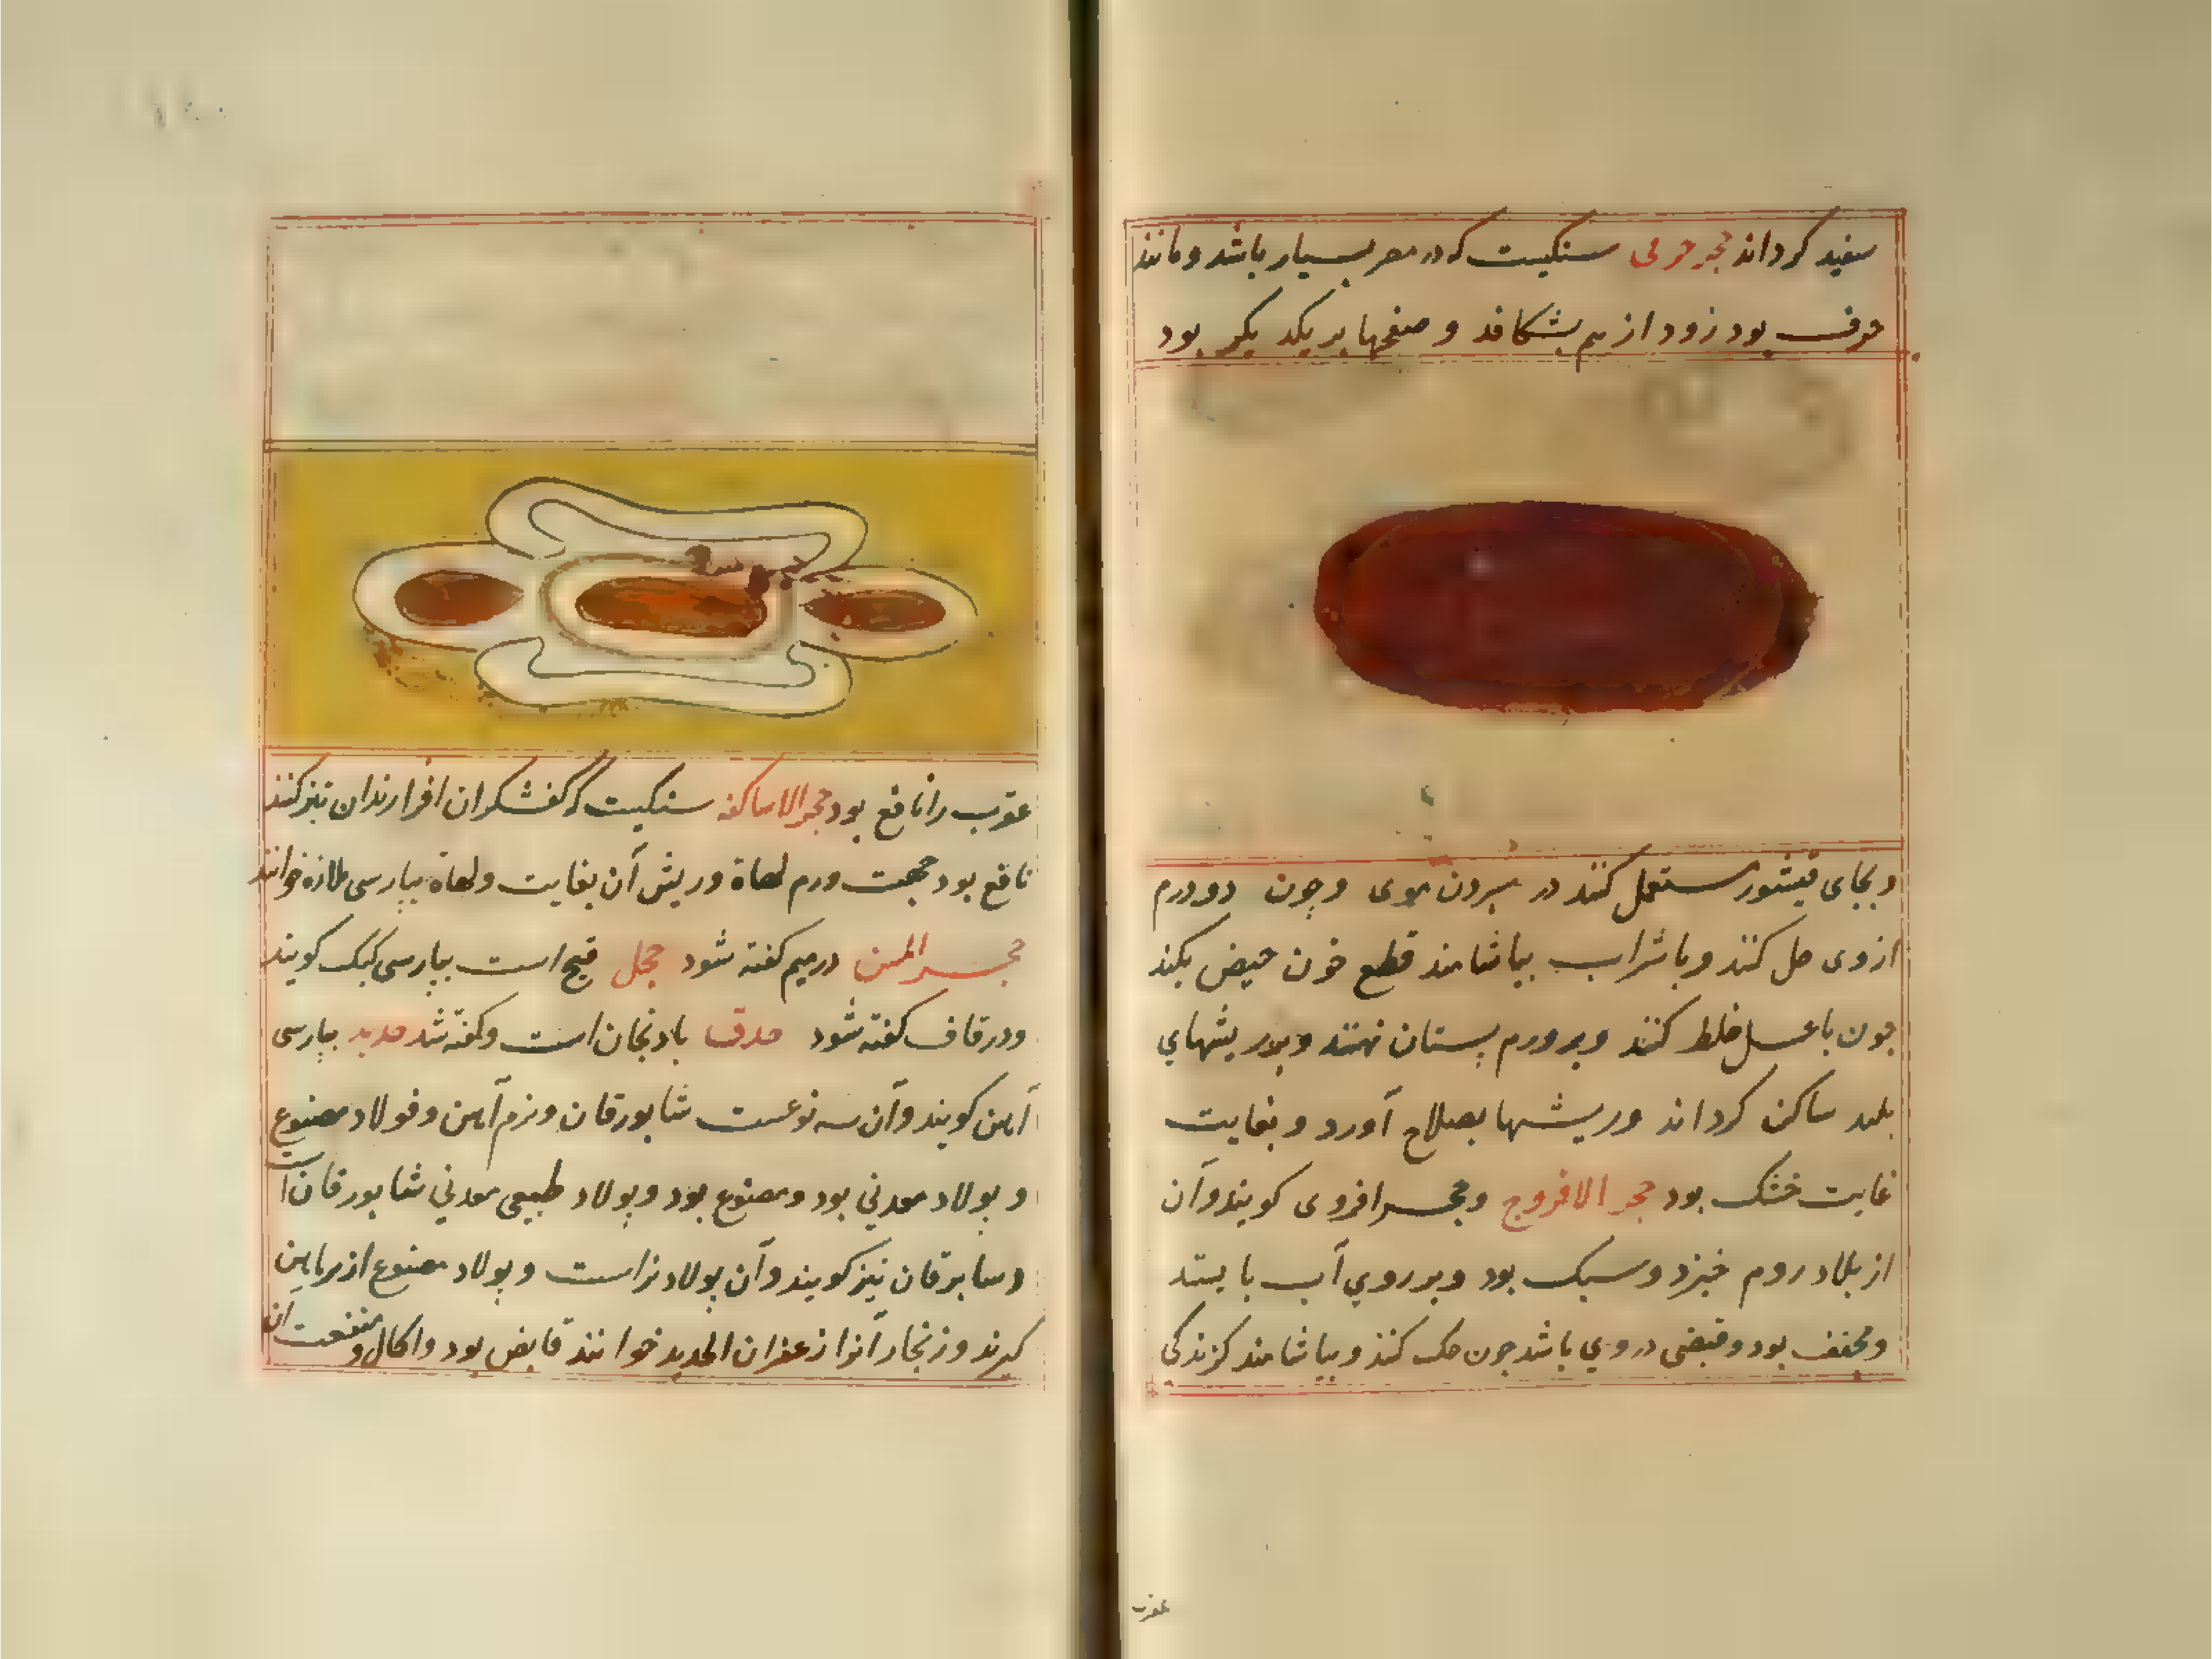 سفید کرداند حجر خزفی سنکیست که در مصر بسیار باشد و مانند
خزف بود زود از هم بشکافد و صفحها بر یکدیکر بود
و بجای قیشور مستعمل کنند در ستردن موی و چون دو درم
از وی حل کنند و با شراب بیاشامند قطع خون حیض بکند
چون با عسل خلط کنند و بر ورم پستان نهند و بر ریشهای
بلید ساکن کرداند و ریشها بصلاح آورد و بغایت
غایت خشک بود حجر الافروج و حجر افروی کویند و آن
از بلاد روم خیزد و سبک بود و بر روی آب بایستد
و مجفف بود و قبضی در وی باشد چون حک کنند و بیاشامند کزندکی
عقرب
عقرب را نافع بود حجر الاساکفه سنکیست که کفشکران افزار بدان تیز کنند
نافع بود جهت ورم لهاة و ریش آن بغایت و لهاة بپارسی ملازه خوانند
حجر المسن در میم کفته شود حجل قبج است بپارسی کبک کویند
و در قاف کفته شود حدق بادنجان است و کفته شد حدید بپارسی
آهن کویند و آن سه نوعست شابورقان و نرم آهن و فولاد مصنوع
و پولاد معدنی بود و مصنوع بود و پولاد طبیعی معدنی شابورقان است
و سابرقان نیز کویند و آن پولاد نر است و پولاد مصنوع از نرم آهن
کیرند و زنجار آنرا زعفران الحدید خوانند قابض بود و اکال و منفعت آن